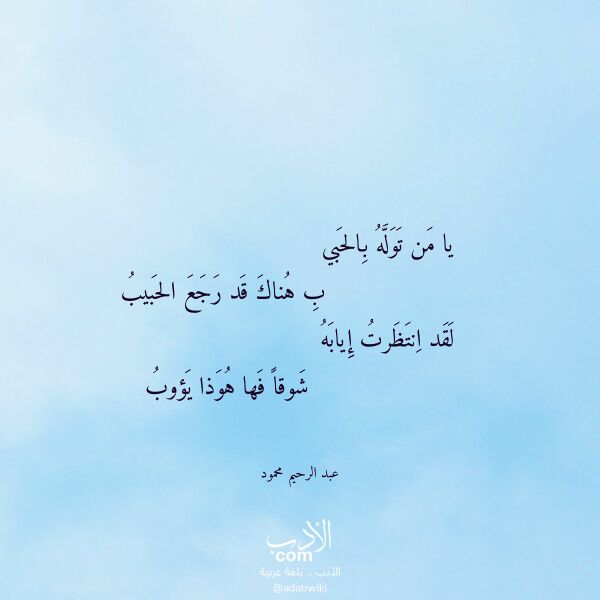 يا مَن تَوَلَّهُ بِالحَبي
بِ هُناكَ قَد رَجَعَ الحَبيبُ
لَقَد اِنتَظَرتُ إِيابَهُ
شَوقاً فَها هُوَذا يَؤوبُ
عبد الرحيم محمود
الأدب
com
الأدب .. بلغة عربية
@adabwiki